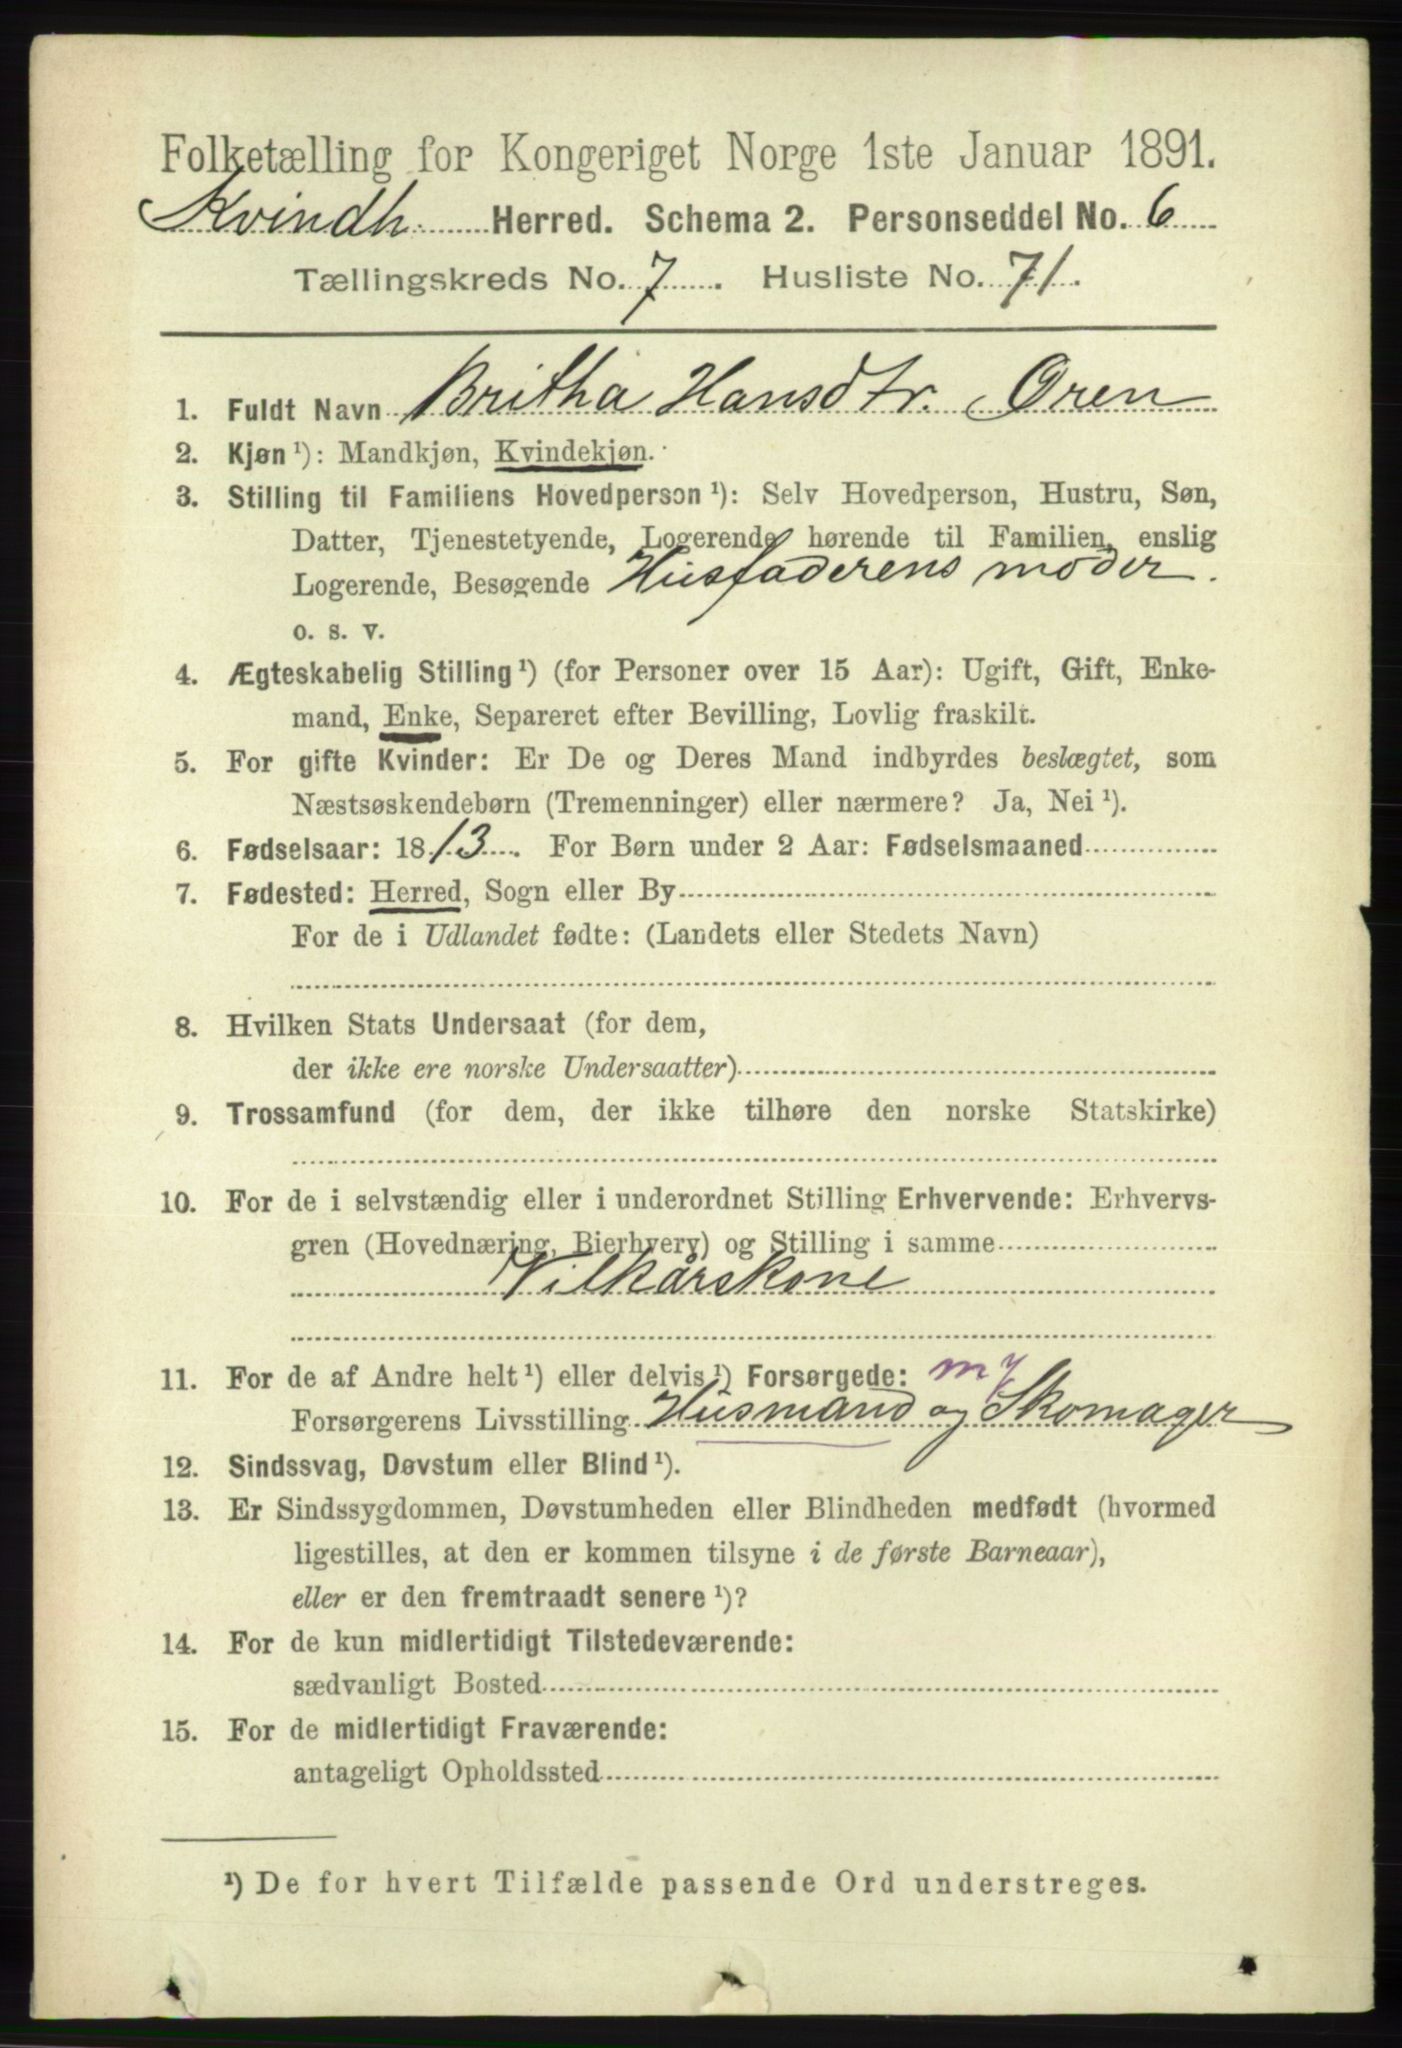 Folketælling for Kongeriget Norge 1ste Januar 1891.
Kvindh. Herred. Schema 2. Personseddel No. 6
Tællingskreds No. 7. Husliste No. 71.
1. Fuldt Navn Britha Hansdtr. Øren
2. Kjøn ¹): Mandkjøn, Kvindekjøn.
3. Stilling til Familiens Hovedperson ¹): Selv Hovedperson, Hustru, Søn,
Datter, Tjenestetyende, Logerende hørende til Familien, enslig
Logerende, Besøgende Husfaderens moder.
o. s. v.
4. Ægteskabelig Stilling ¹) (for Personer over 15 Aar): Ugift, Gift, Enke-
mand, Enke, Separeret efter Bevilling, Lovlig fraskilt.
5. For gifte Kvinder: Er De og Deres Mand indbyrdes beslægtet, som
Næstsøskendebørn (Tremenninger) eller nærmere? Ja, Nei ¹).
6. Fødselsaar: 1813. For Børn under 2 Aar: Fødselsmaaned
7. Fødested: Herred, Sogn eller By
For de i Udlandet fødte: (Landets eller Stedets Navn)
8. Hvilken Stats Undersaat (for dem,
der ikke ere norske Undersaatter)
9. Trossamfund (for dem, der ikke tilhøre den norske Statskirke)
10. For de i selvstændig eller i underordnet Stilling Erhvervende: Erhvervs-
gren (Hovednæring, Bierhverv) og Stilling i samme
Vilkårskone
11. For de af Andre helt ¹) eller delvis ¹) Forsørgede:
Forsørgerens Livsstilling Husmand og Skomager
12. Sindssvag, Døvstum eller Blind ¹).
13. Er Sindssygdommen, Døvstumheden eller Blindheden medfødt (hvormed
ligestilles, at den er kommen tilsyne i de første Barneaar),
eller er den fremtraadt senere ¹)?
14. For de kun midlertidigt Tilstedeværende:
sædvanligt Bosted
15. For de midlertidigt Fraværende:
antageligt Opholdssted
¹) De for hvert Tilfælde passende Ord understreges.